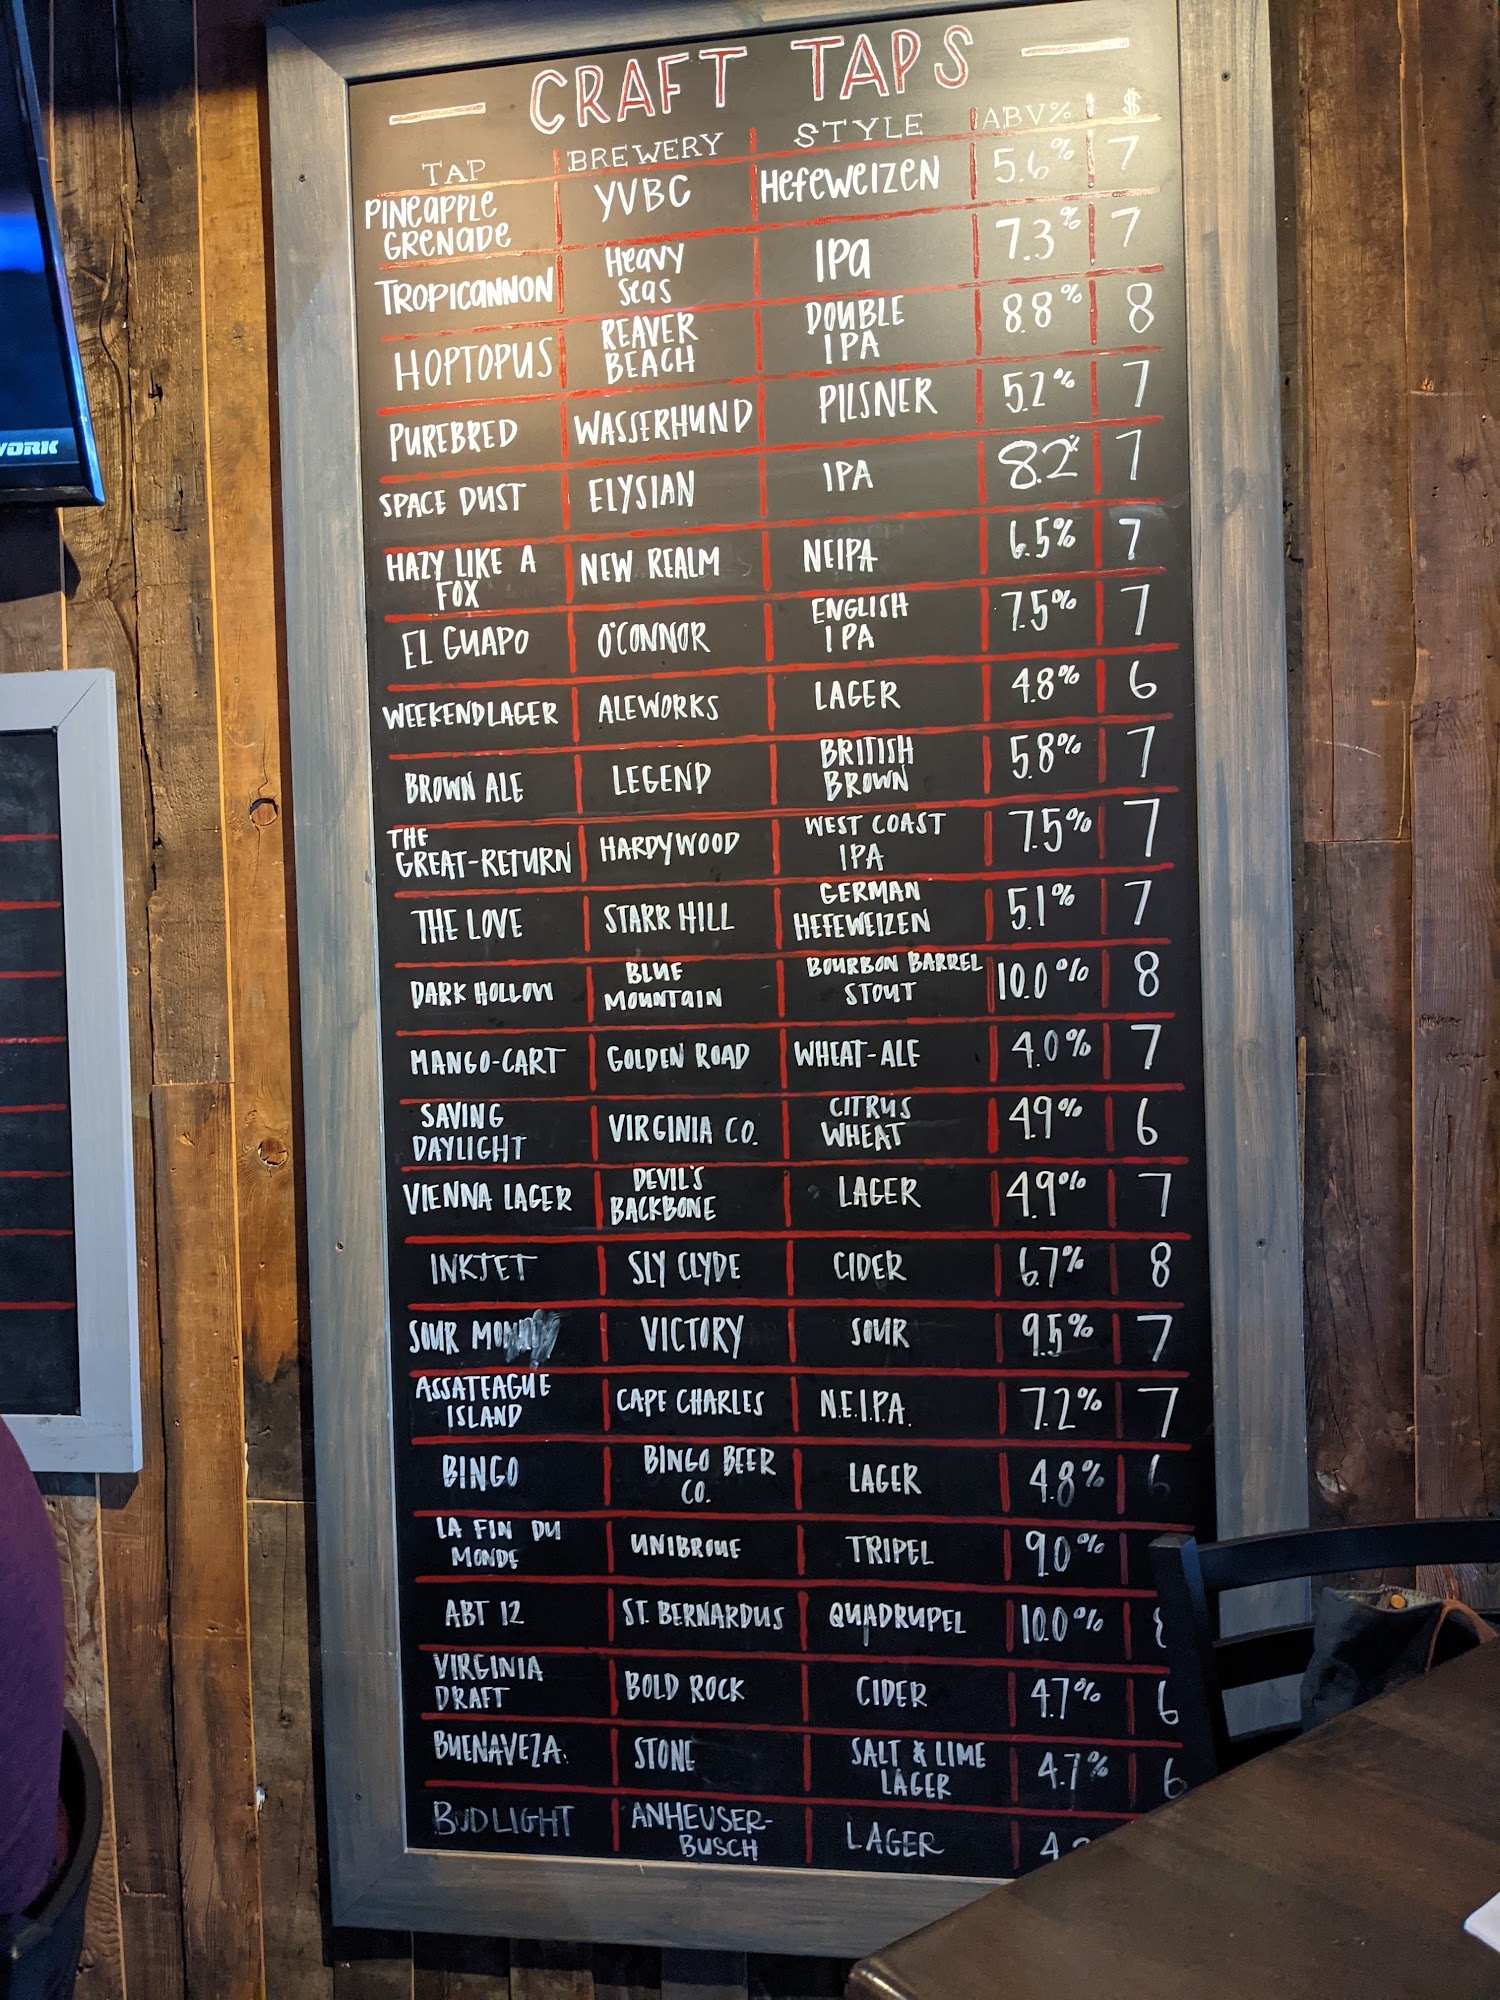 CRAFT TAPS
TAP BREWERY STYLE ABV% $
PINEAPPLE GRENADE YVBC HEFEWEIZEN 5.6% 7
TROPICANNON HEAVY SEAS IPA 7.3% 7
HOPTOPUS REAVER BEACH DOUBLE IPA 8.8% 8
PUREBRED WASSERHUND PILSNER 5.2% 7
SPACE DUST ELYSIAN IPA 8.2% 7
HAZY LIKE A FOX NEW REALM NEIPA 6.5% 7
EL GUAPO O'CONNOR ENGLISH IPA 7.5% 7
WEEKENDLAGER ALEWORKS LAGER 4.8% 6
BROWN ALE LEGEND BRITISH BROWN 5.8% 7
THE GREAT-RETURN HARDYWOOD WEST COAST IPA 7.5% 7
THE LOVE STARR HILL GERMAN HEFEWEIZEN 5.1% 7
DARK HOLLOW BLUE MOUNTAIN BOURBON BARREL STOUT 10.0% 8
MANGO-CART GOLDEN ROAD WHEAT-ALE 4.0% 7
SAVING DAYLIGHT VIRGINIA CO. CITRUS WHEAT 4.9% 6
VIENNA LAGER DEVIL'S BACKBONE LAGER 4.9% 7
INKJET SLY CLYDE CIDER 6.7% 8
SOUR VICTORY SOUR 9.5% 7
ASSATEAGUE ISLAND CAPE CHARLES N.E.I.P.A. 7.2% 7
BINGO BINGO BEER CO. LAGER 4.8% 6
LA FIN DU MONDE UNIBROUE TRIPEL 9.0%
ABT 12 ST. BERNARDUS QUADRUPEL 10.0%
VIRGINIA DRAFT BOLD ROCK CIDER 4.7% 6
BUENAVEZA. STONE SALT & LIME LAGER 4.7% 6
BUD LIGHT ANHEUSER-BUSCH LAGER